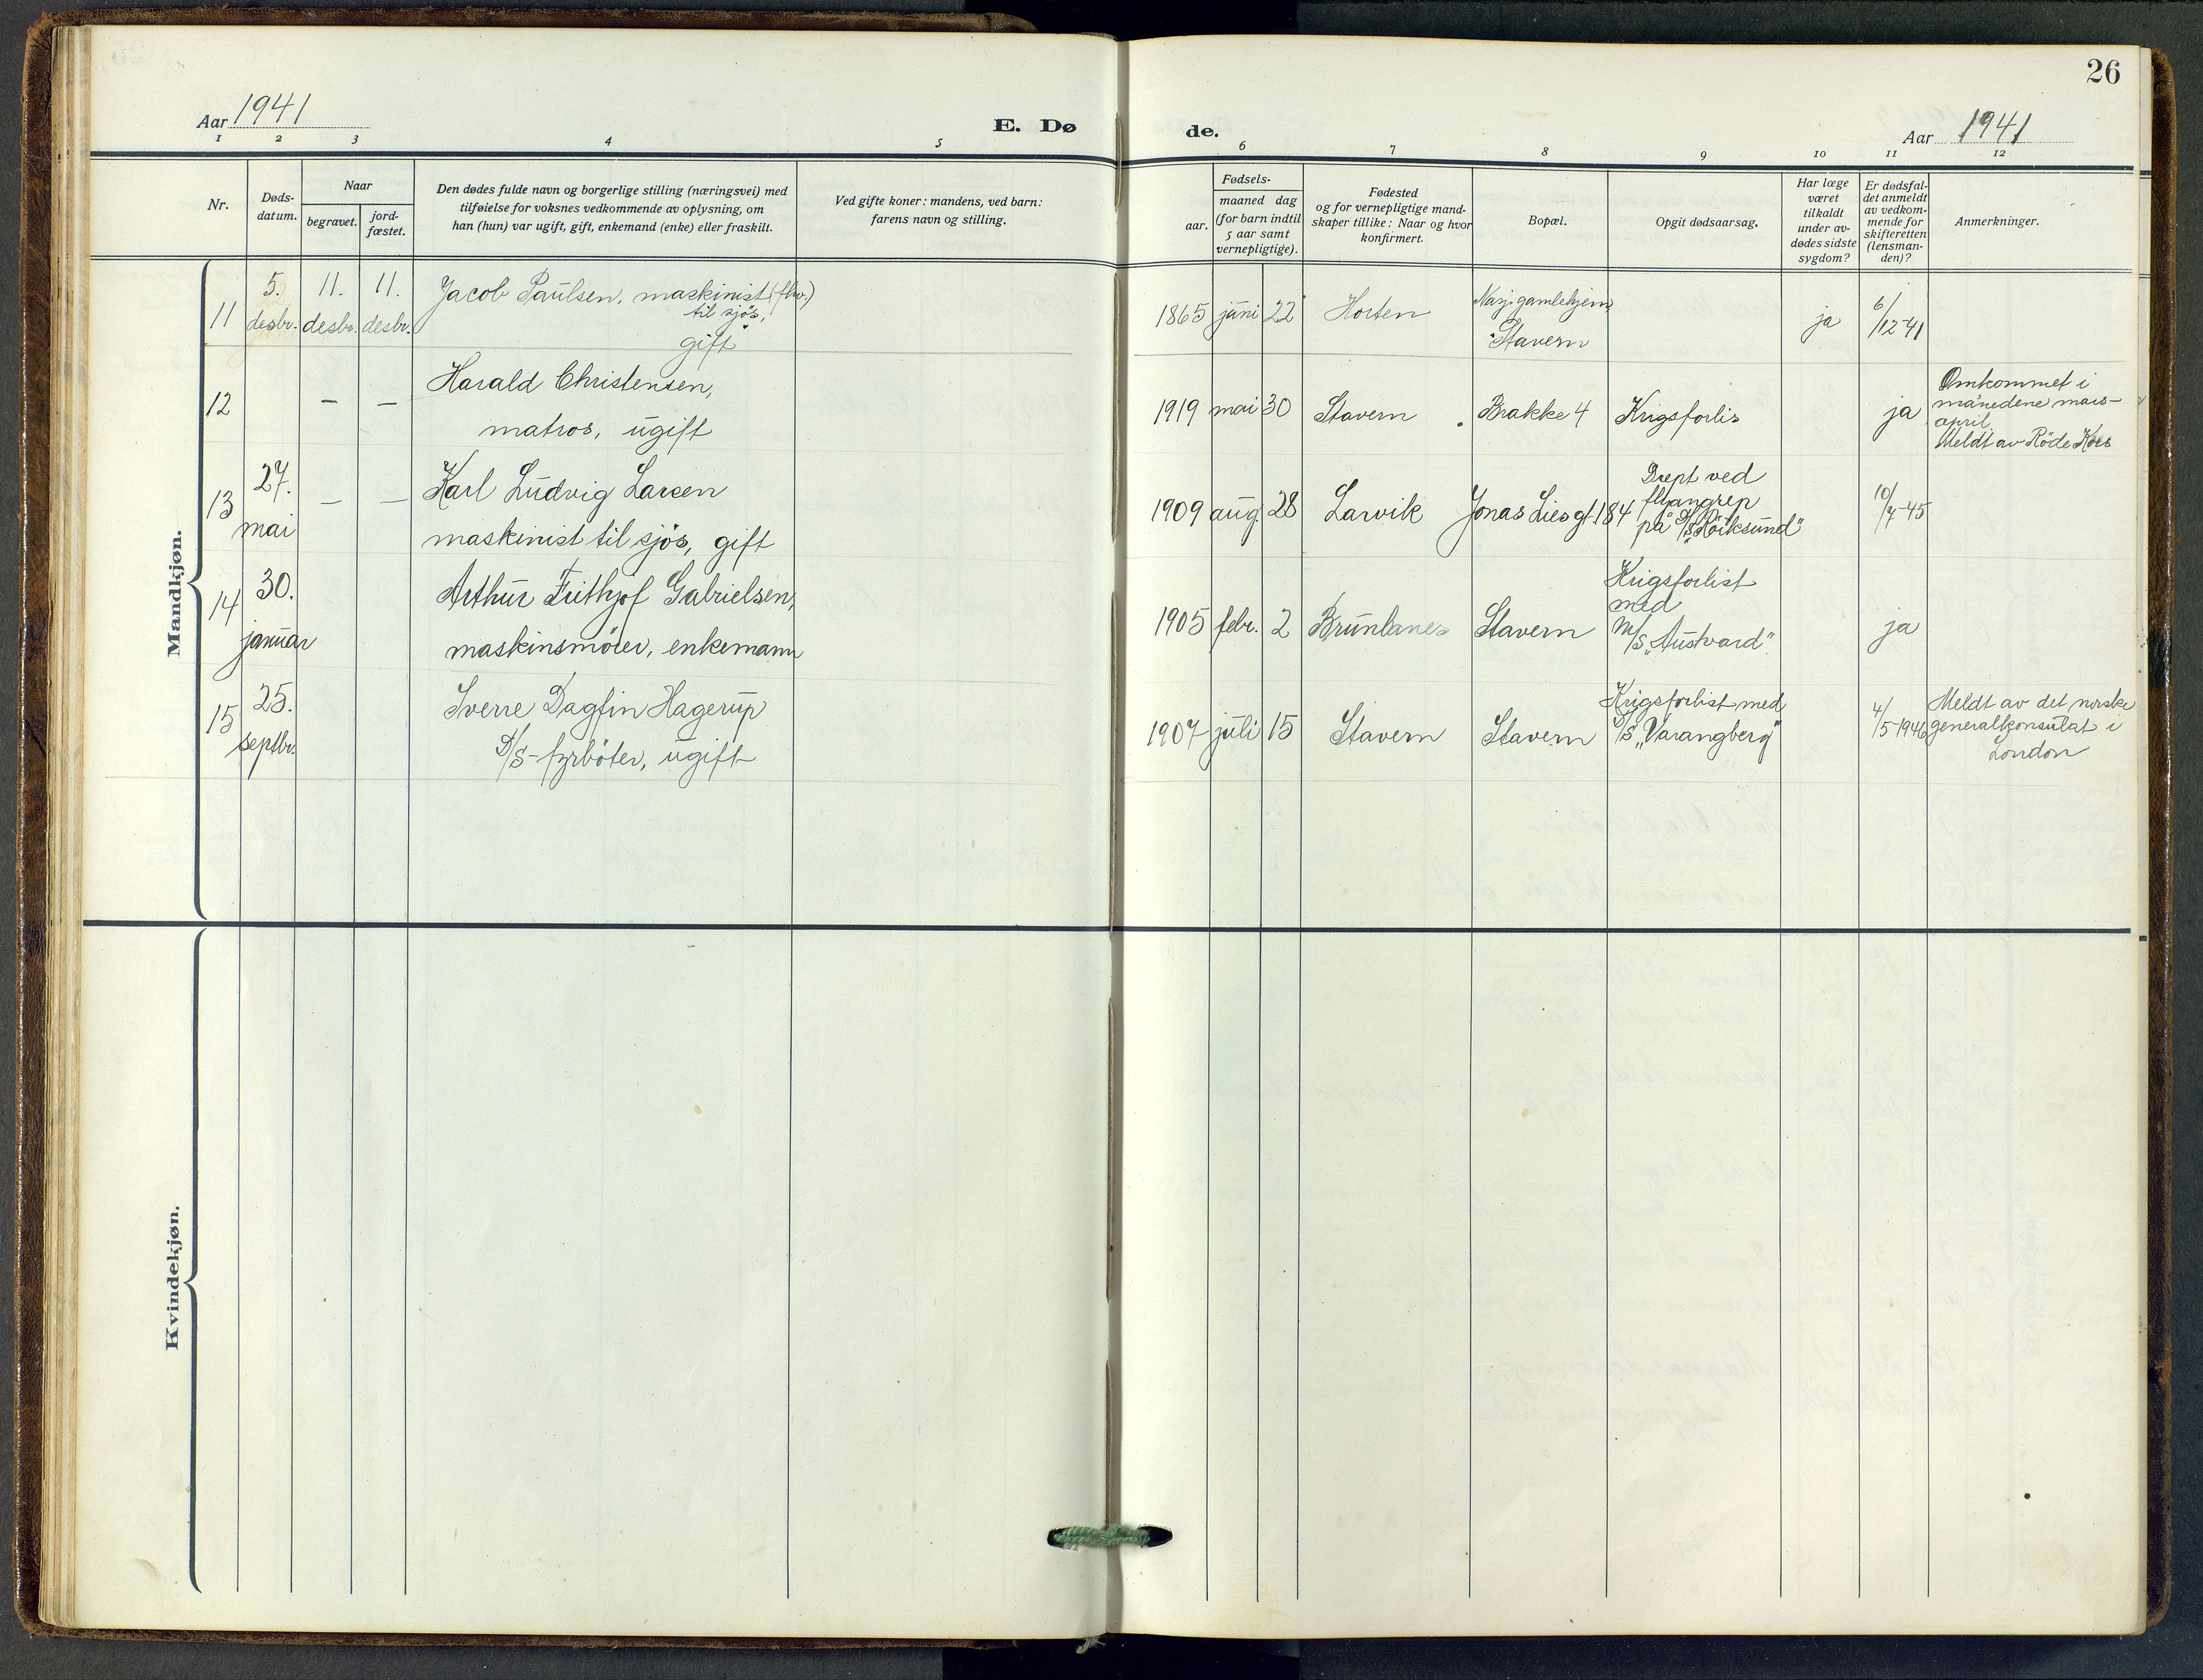 26
Aar 1941
E. Dø
de.
Aar 1941
1 2 3 4 5 6 7 8 9 10 11 12
Nr.
Døds-
datum.
Naar
begravet.
jord-
fæstet.
Den dødes fulde navn og borgerlige stilling (næringsvei) med
tilføielse for voksnes vedkommende av oplysning, om
han (hun) var ugift, gift, enkemand (enke) eller fraskilt.
Ved gifte koner: mandens, ved barn:
farens navn og stilling.
Fødsels-
aar.
maaned dag
(for barn indtil
5 aar samt
vernepligtige).
Fødested
og for vernepligtige mand-
skaper tillike: Naar og hvor
konfirmert.
Bopæl.
Opgit dødsaarsag.
Har læge
været
tilkaldt
under av-
dødes sidste
sygdom?
Er dødsfal-
det anmeldt
av vedkom-
mende for
skifteretten
(lensman-
den)?
Anmerkninger.
Mandkjøn.
11
5.
desbr.
11.
desbr.
11.
desbr.
Jacob Paulsen, maskinist (fhv.)
til sjös,
gift
1865 juni 22
Horten
gamlehjem,
Stavern
ja
6/
/12-41
12
– –
Harald Christensen,
matros, ugift
1919 mai 30
Stavern
Brakke 4
Krigsforlis
ja
Omkommet i
månedene mars-
april.
Meldt av Röde Kors
13
27.
mai
– –
Karl Ludvig Larsen
maskinist til sjös, gift
1909 aug. 28
Larvik
Jonas Lies gt. 184
Drept ved
flyangrep
på D/S „Röiksund"
10/
/7-45
14
30.
januar
Arthur Frithjof Gabrielsen,
maskinsmörer, enkemann
1905 febr. 2
Brunlanes
Stavern
Krigsforlist
med
M/S „Austvard".
ja
15
25.
septbr.
Sverre Dagfin Hagerup
D/S-fyrböter, ugift
1907 juli 15
Stavern
Stavern
Krigsforlist med
D/S „Varangberg"
4/
/5-1946
Meldt av det norske
generalkonsulat i
London
Kvindekjøn.